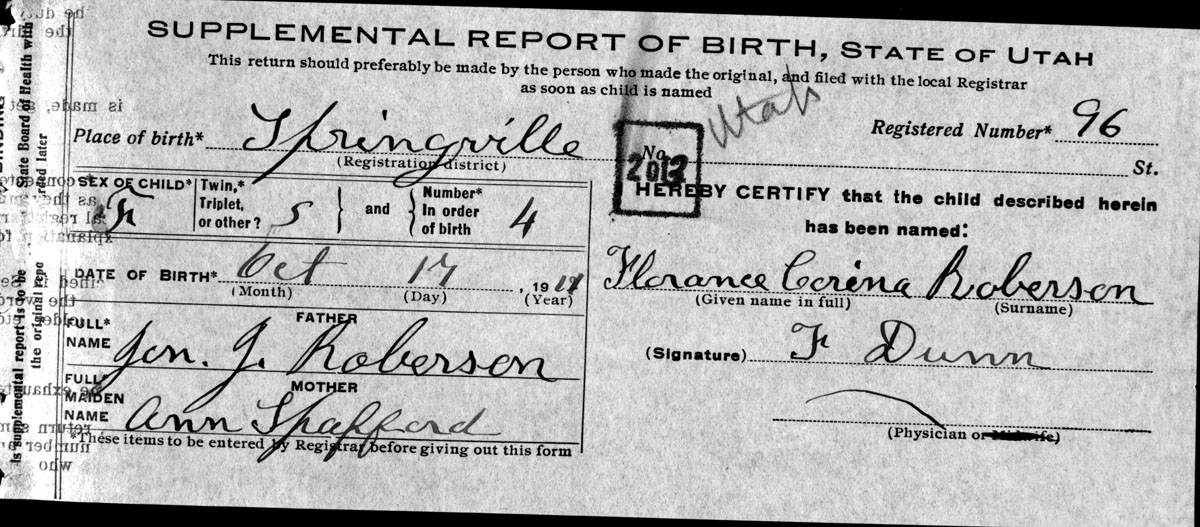 SUPPLEMENTAL REPORT OF BIRTH, STATE OF UTAH
This return should preferably be made by the person who made the original, and filed with the local Registrar
as soon as child is named
Utah
Place of birth* Springville
(Registration district)
Registered Number* 96
St.
No.
2012
SEX OF CHILD* F
Twin,* Triplet, or other? S
and
Number* In order of birth 4
DATE OF BIRTH* Oct 17, 19
(Month) (Day) (Year)
FATHER
FULL* NAME Jon. J. Roberson
MOTHER
FULL* MAIDEN NAME Ann Spafford
*These items to be entered by Registrar before giving out this form
I HEREBY CERTIFY that the child described herein
has been named:
Florance Corina Roberson
(Given name in full) (Surname)
(Signature) F Dunn
(Physician or Midwife)
is supplemental report is to be
the original repo
State Board of Health with
rded later